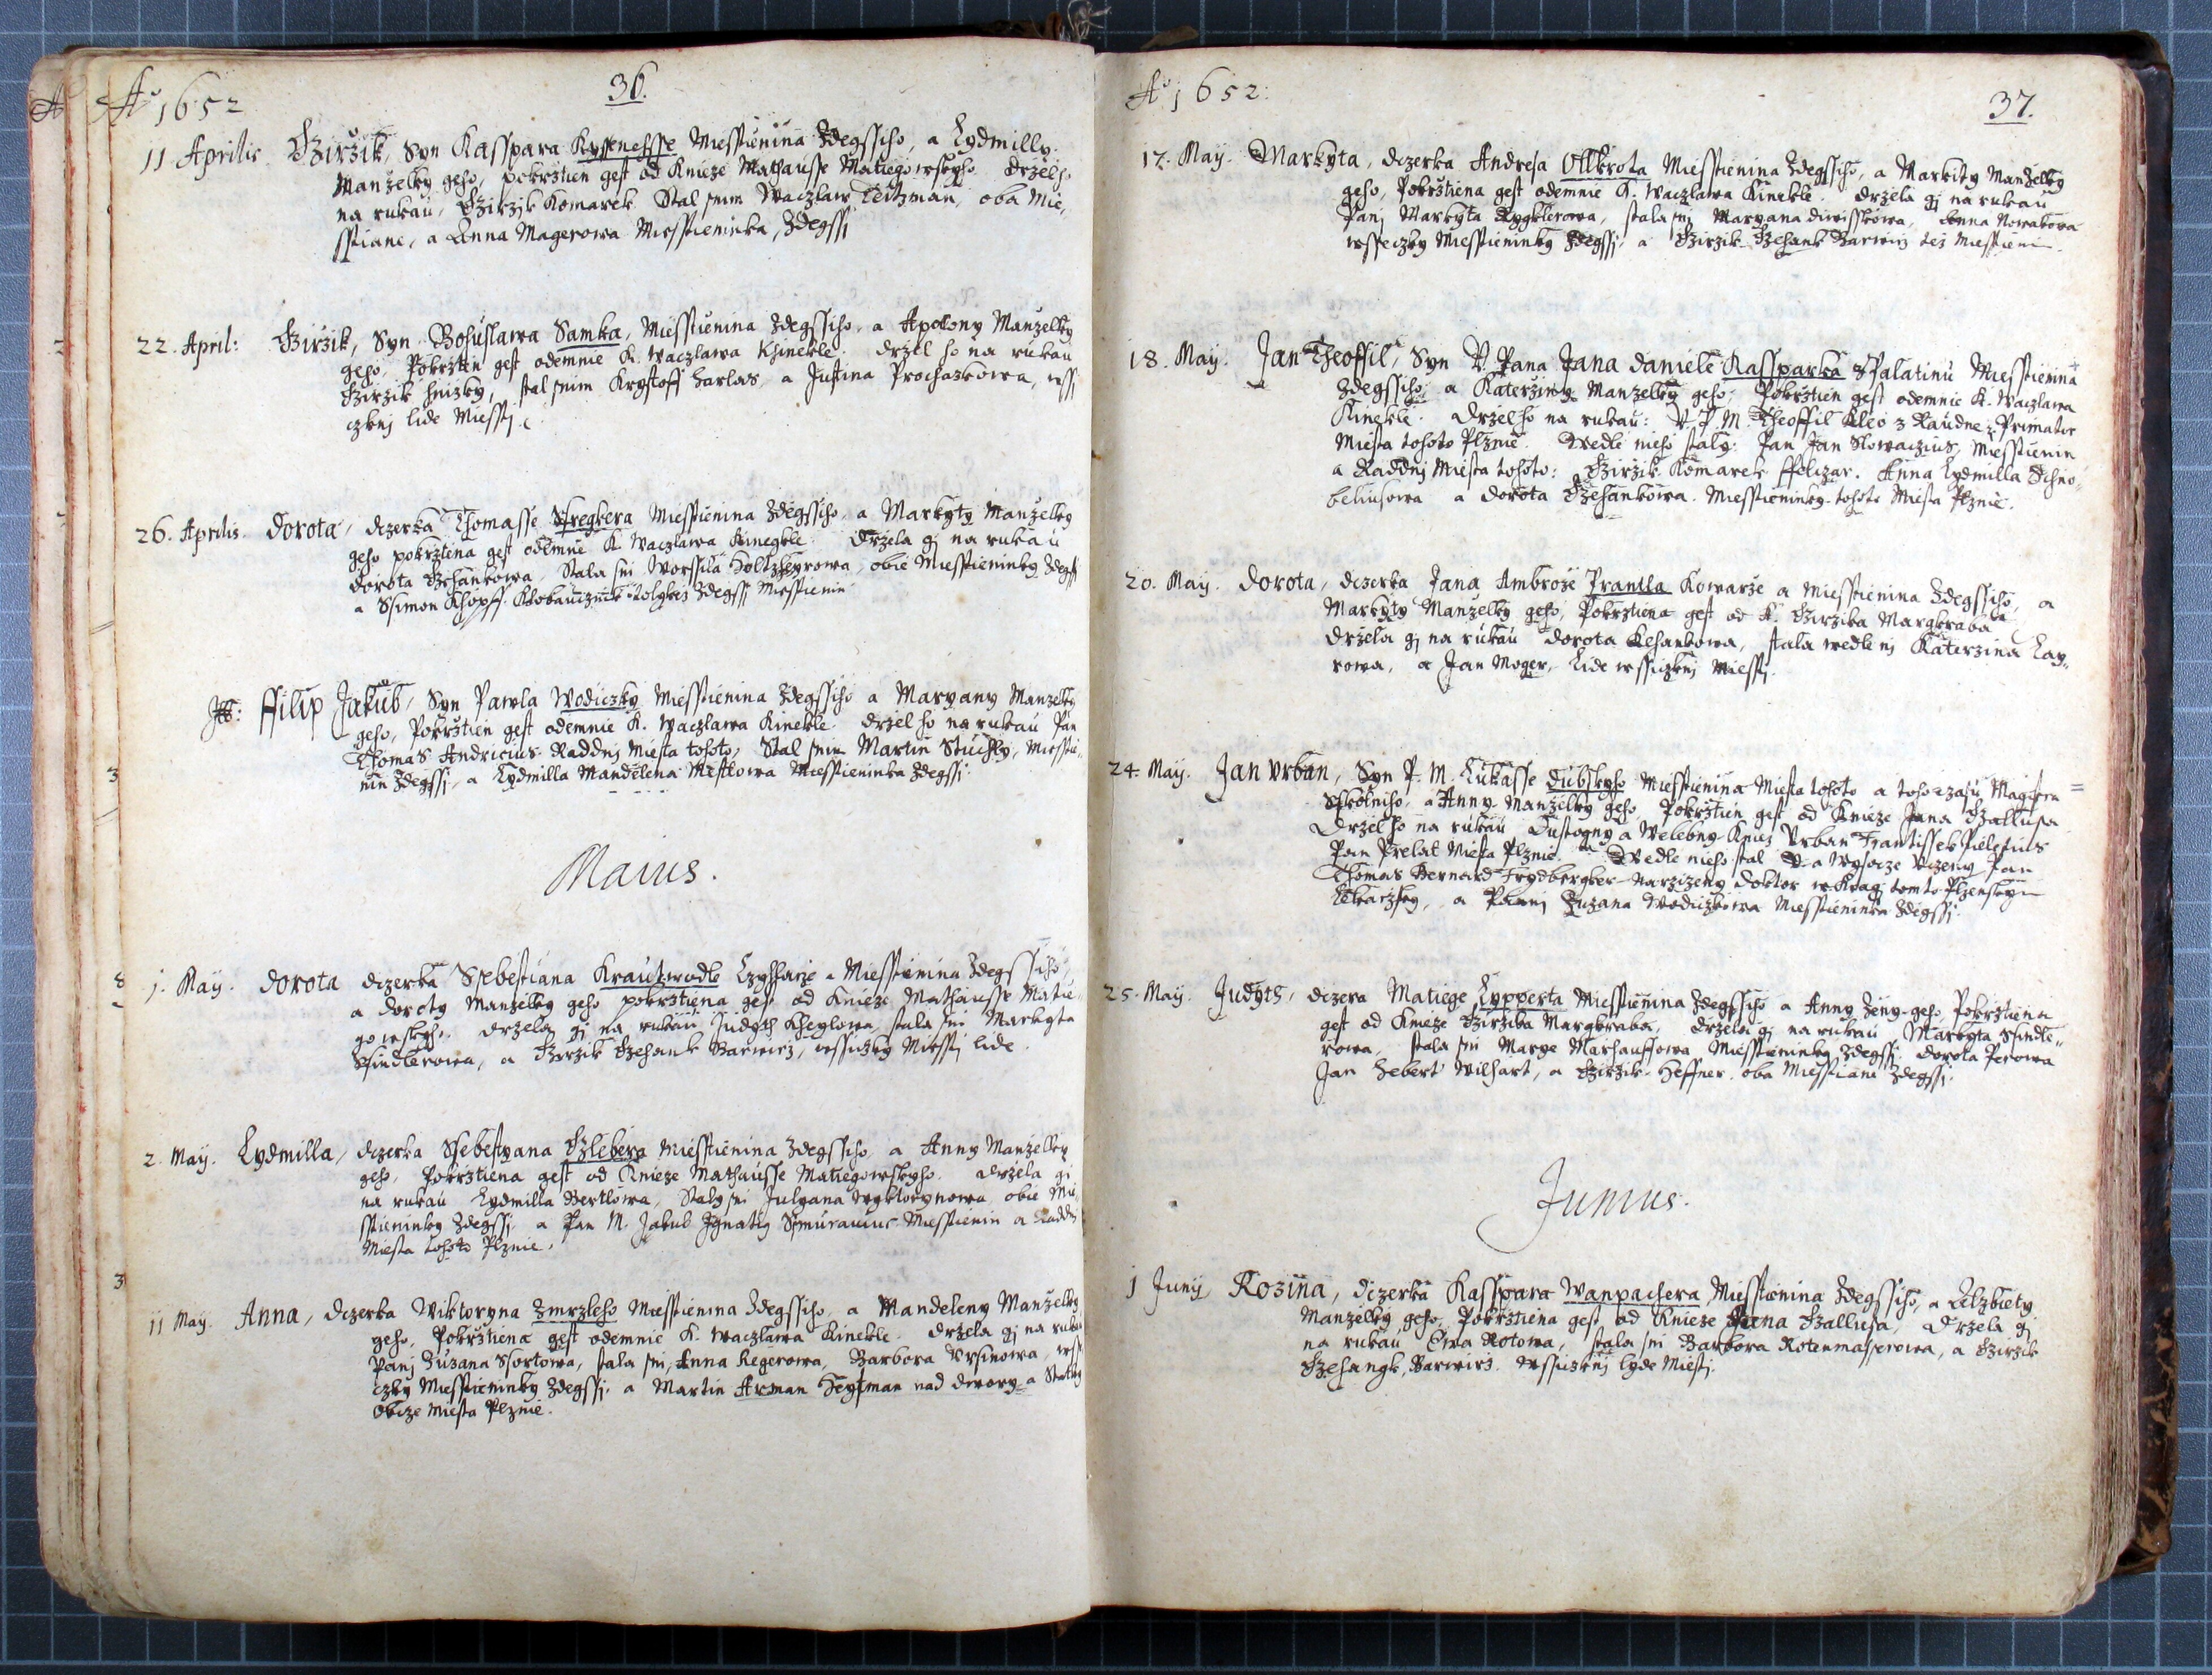 Ao 1652
36.
11 Aprilis. Girzik, Syn Kasspara Miesstienina Zdegssiho, a Lydmilly
Manzelky geho, pokrztien gest od Knieze Mathausse Matiegowskyho. Drzel ho
na rukau, Girzik Komarek. Stal snim Waczlaw Teitzman, oba Mie¬
sstiane, a Anna Magerowa Miesstieninka, Zdegssi
22. April: Girzik, Syn Bohuslawa Samka, Miesstienina Zdegssiho, a Apolony Manzelky
geho, Pokrztien gest odemnie K. Waczlawa Kinekle. Drzel ho na rukau
Girzik Hnizky, stal snim Krystoff Harlas, a Justina Prochazkowa, wssi
czknj lide Miesstj.
26. Aprilis. Dorota, dczerka Thomasse Miesstienina Zdegssiho, a Markyty Manzelky
geho pokrztena gest odemnie K. Waczlawa Kinegkle. Drzela gj na rukau
Dorota Gehankowa, Stala sni Worssila Holtzheyrowa, obie Miesstieninky Zdegssi
a Ssimon Khopff. Klobaucznik Zdegssj Miesstienin
Ffilip Jakub, Syn Pawla Wodiczky Miesstienina Zdegssiho a Maryany Manzelky
geho, Pokrztien gest odemnie K. Waczlawa Kinekle. Drzel ho na rukau Pan
Thomas Andricius Raddnj Miesta tohoto, Stal snim Martin Stuchly, Miesstie¬
nin Zdegssj, a Lydmilla Mandelena Miesstieninka Zdegssj.
Maius.
1. May. Dorota dczerka Ssebestiana Krautwadle a Miesstienina Zdegssiho,
a Doroty Manzelky geho pokrztiena gest od Knieze Mathausse Matie¬
gowskyho. Drzela gj na rukau Judyth Kheylowa, stala sni Markyta
Sspindlerowa, a Girzik Gehank Barwirz, wssiczky Miesstj lide.
2. May. Lydmilla, dczerka Ssebestyana Miesstienina Zdegssiho, a Anny Manzelky
geho, Pokrztiena gest od Knieze Mathausse Matiegowskyho. Drzela gj
na rukau Lydmilla Bertlowa, Staly sni Julyana Wyktorynowa, obie Mie¬
sstieninky Zdegssj a Pan M. Jakub Jgnatiy Miesstienin a Raddnj
Miesta tohoto Plznie.
11 May. Anna, dczerka Wiktoryna Zmrzleho Miesstienina Zdegssiho, a Mandeleny Manzelky
geho, Pokrztiena gest odemnie K. Waczlawa Kinekle. Drzela gj na rukau
Panj Zuzana Ssortowa, stala sni, Anna Regerowa, Barbora Ursinowa, wssi
czky Miesstieninky Zdegssj, a Martin Arman Heytman nad dwory a Statky
Obcze Miesta Plznie.
Ao 1652:
37.
17. May. Markyta, dczerka Andresa Miesstienina Zdegssiho, a Markity Manzelky
geho, Pokrztiena gest odemnie K. Waczlawa Kinekle. Drzela gj na rukau
Panj Markyta stala sni Maryana Anna Nowakowa
wsseczky Miesstieninky Zdegssj, a Girzik Gehank Barwirz tez Miesstienin.
18. May. Jan Theoffil, Syn V. Pana Jana Daniele Kassparka Miesstienina
Zdegssiho, a Katerziny Manzelky geho, Pokrztien gest odemnie K. Waczlawa
Kinekle. Drzel ho na rukau: V. P. M. Theoffil Kleo z Raudne Primator
Miesta tohoto Plznie. Wedle nieho staly: Pan Jan Slowaczius, Miesstienin
a Raddnj Miesta tohoto: Girzik Komarek Anna Lydmilla Schno¬
beliusowa a Dorota Gehankowa. Miesstieninky tohoto Miesta Plznie.
20. May. Dorota, dczerka Jana Ambroze Prantla Kowarze a Miesstienina Zdegssiho, a
Markyty Manzelky geho, Pokrztiena gest od K. Girzika Margkraba
Drzela gj na rukau Dorota stala wedle nj Katerzina Lay¬
rowa, a Jan Moger, Lide wssiczknj Miesstj.
24. May. Jan Urban, Syn P. M. Lukasse Dubskyho Miesstienina Miesta tohoto a toho czasu Magistra
Sskolniho, a Anny Manzelky geho, Pokrztien gest od Knieze Jana Gallusa
Drzel ho na rukau Dustogny a Welebny Kniez Urban Frantissek
Pan Prelat Miesta Plznie. Wedle nieho stal a Wysocze Uczeny Pan
Thomas Bernard Frydbergker Narzizeny Doktor w Kragj tomto Plzenskym
Lekarzsky, a Pannj Zuzana Wodiczkowa Miesstieninka Zdegssj.
25. May. Judyth, dczera Matiege Lypperta Miesstienina Zdegssiho a Anny Zeny geho, Pokrztiena
gest od Knieze Girzika Margkraba, Drzela gj na rukau Markyta Sspindle¬
rowa, stala sni Marye Marhaussowa Miesstieninky Zdegssj, Dorota Perowa
Jan Hebert Wilhart, a Girzik Heffner, oba Miesstiane Zdegssj.
Junius.
1 Juny Rozina, dczerka Kasspara Wanpachera Miesstienina Zdegssiho, a Alzbiety
Manzelky geho, Pokrztiena gest od Knieze Jana Gallusa, Drzela gj
na rukau Ewa Rotowa, stala sni Barbora a Girzik
Gehangk, Barwirz. Wssiczknj lyde Miestj.